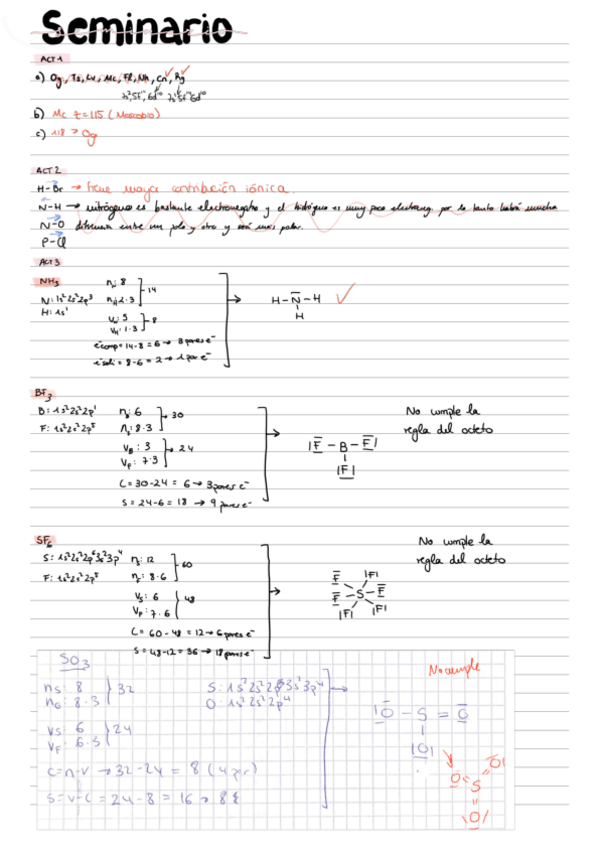 Seminario
ACT 1
a) Og, Ts, Lv, Mc, Fl, Nh, Cn, Rg
7s² 5f¹⁴, 6d¹⁰ 7s² 5f¹⁴ 6d¹⁰
b) Mc Z=115 (Moscobio)
c) 118 → Og
ACT 2
H-Br → tiene mayor contribución iónica.
N-H → nitrógeno es bastante electronegativo y el hidrógeno es muy poco electroneg. por lo tanto habrá mucha
N-O diferencia entre un polo y otro y será más polar.
P-Cl
ACT 3
NH₃
N: 1s² 2s² 2p³
H: 1s¹
n: 8
n: 2·3
14
V: 5
V: 1·3
8
e⁻comp = 14-8 = 6 → 3 pares e⁻
e⁻soli = 8-6 = 2 → 1 par e⁻
H-N-H
H
BF₃
B: 1s² 2s² 2p¹
F: 1s² 2s² 2p⁵
n: 6
n: 8·3
30
V_B: 3
V_F: 7·3
24
C = 30-24 = 6 → 3 pares e⁻
S = 24-6 = 18 → 9 pares e⁻
|F - B - F|
|F|
No cumple la
regla del octeto
SF₆
S: 1s² 2s² 2p⁶ 3s² 3p⁴
F: 1s² 2s² 2p⁵
n: 12
n: 8·6
60
V_S: 6
V_F: 7·6
48
C = 60-48 = 12 → 6 pares e⁻
S = 48-12 = 36 → 18 pares e⁻
F |F|
F - S - F
|F| |F|
No cumple la
regla del octeto
SO₃
n_S: 8
n_O: 8·3
32
S: 1s² 2s² 2p⁶ 3s² 3p⁴
O: 1s² 2s² 2p⁴
V_S 6
V_F: 6·3
24
C=n-v → 32-24 = 8 (4 par)
S=v-C = 24-8 = 16 → 8
|O - S = O
|O|
No cumple
O S O|
|O|